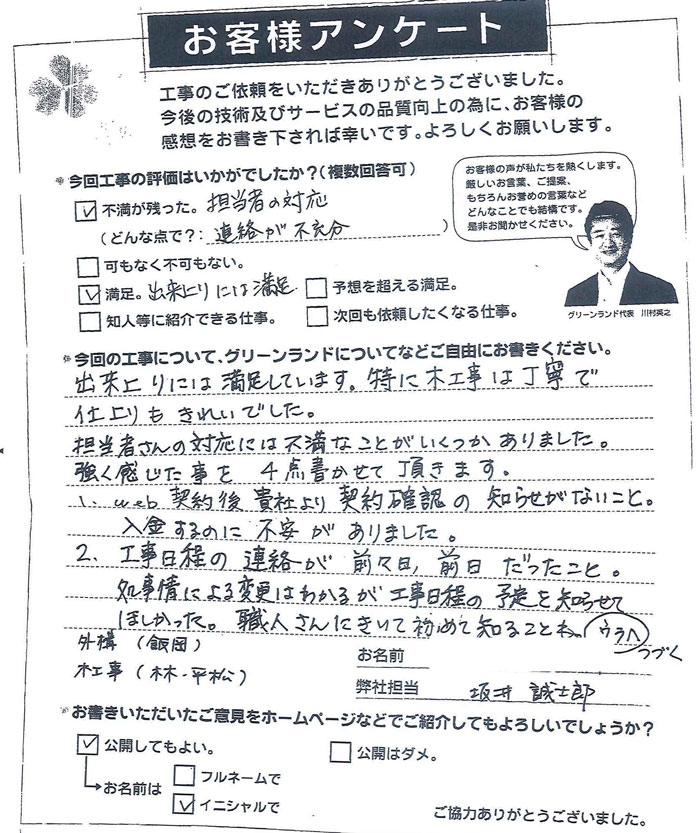 お客様アンケート
工事のご依頼をいただきありがとうございました。
今後の技術及びサービスの品質向上の為に、お客様の
感想をお書き下されば幸いです。よろしくお願いします。
今回工事の評価はいかがでしたか?(複数回答可)
不満が残った。担当者の対応
(どんな点で?: 連絡が不充分 )
可もなく不可もない。
満足。出来上りには満足
予想を超える満足。
知人等に紹介できる仕事。
次回も依頼したくなる仕事。
お客様の声が私たちを熱くします。
厳しいお言葉、ご提案、
もちろんお誉めの言葉など
どんなことでも結構です。
是非お聞かせください。
グリーンランド代表 川村英之
今回の工事について、グリーンランドについてなどご自由にお書きください。
出来上りには満足しています。特に木工事は丁寧で
仕上りもきれいでした。
担当者さんの対応には不満なことがいくつかありました。
強く感じた事を4点書かせて頂きます。
1. web契約後貴社より契約確認の知らせがないこと。
入金するのに不安がありました。
2. 工事日程の連絡が前々日,前日だったこと。
事情による変更はわかるが工事日程の予定を知らせて
ほしかった。職人さんにきいて初めて知ること
ウラへ
つづく
外構(飯岡)
木工事(林・平松)
お名前
弊社担当 坂井 誠士郎
お書きいただいたご意見をホームページなどでご紹介してもよろしいでしょうか?
公開してもよい。
公開はダメ。
お名前は
フルネームで
イニシャルで
ご協力ありがとうございました。